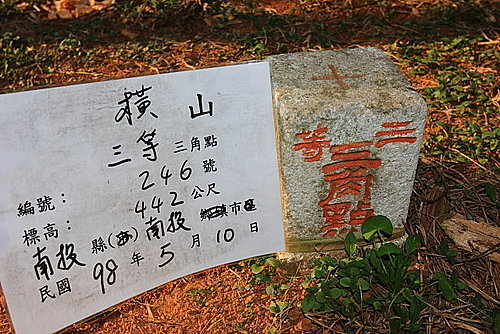 橫山
三等三角點
246號
編號：
442公尺
標高：
南投縣(市)南投鄉鎮市區
民國98年5月10日
三等
三角點